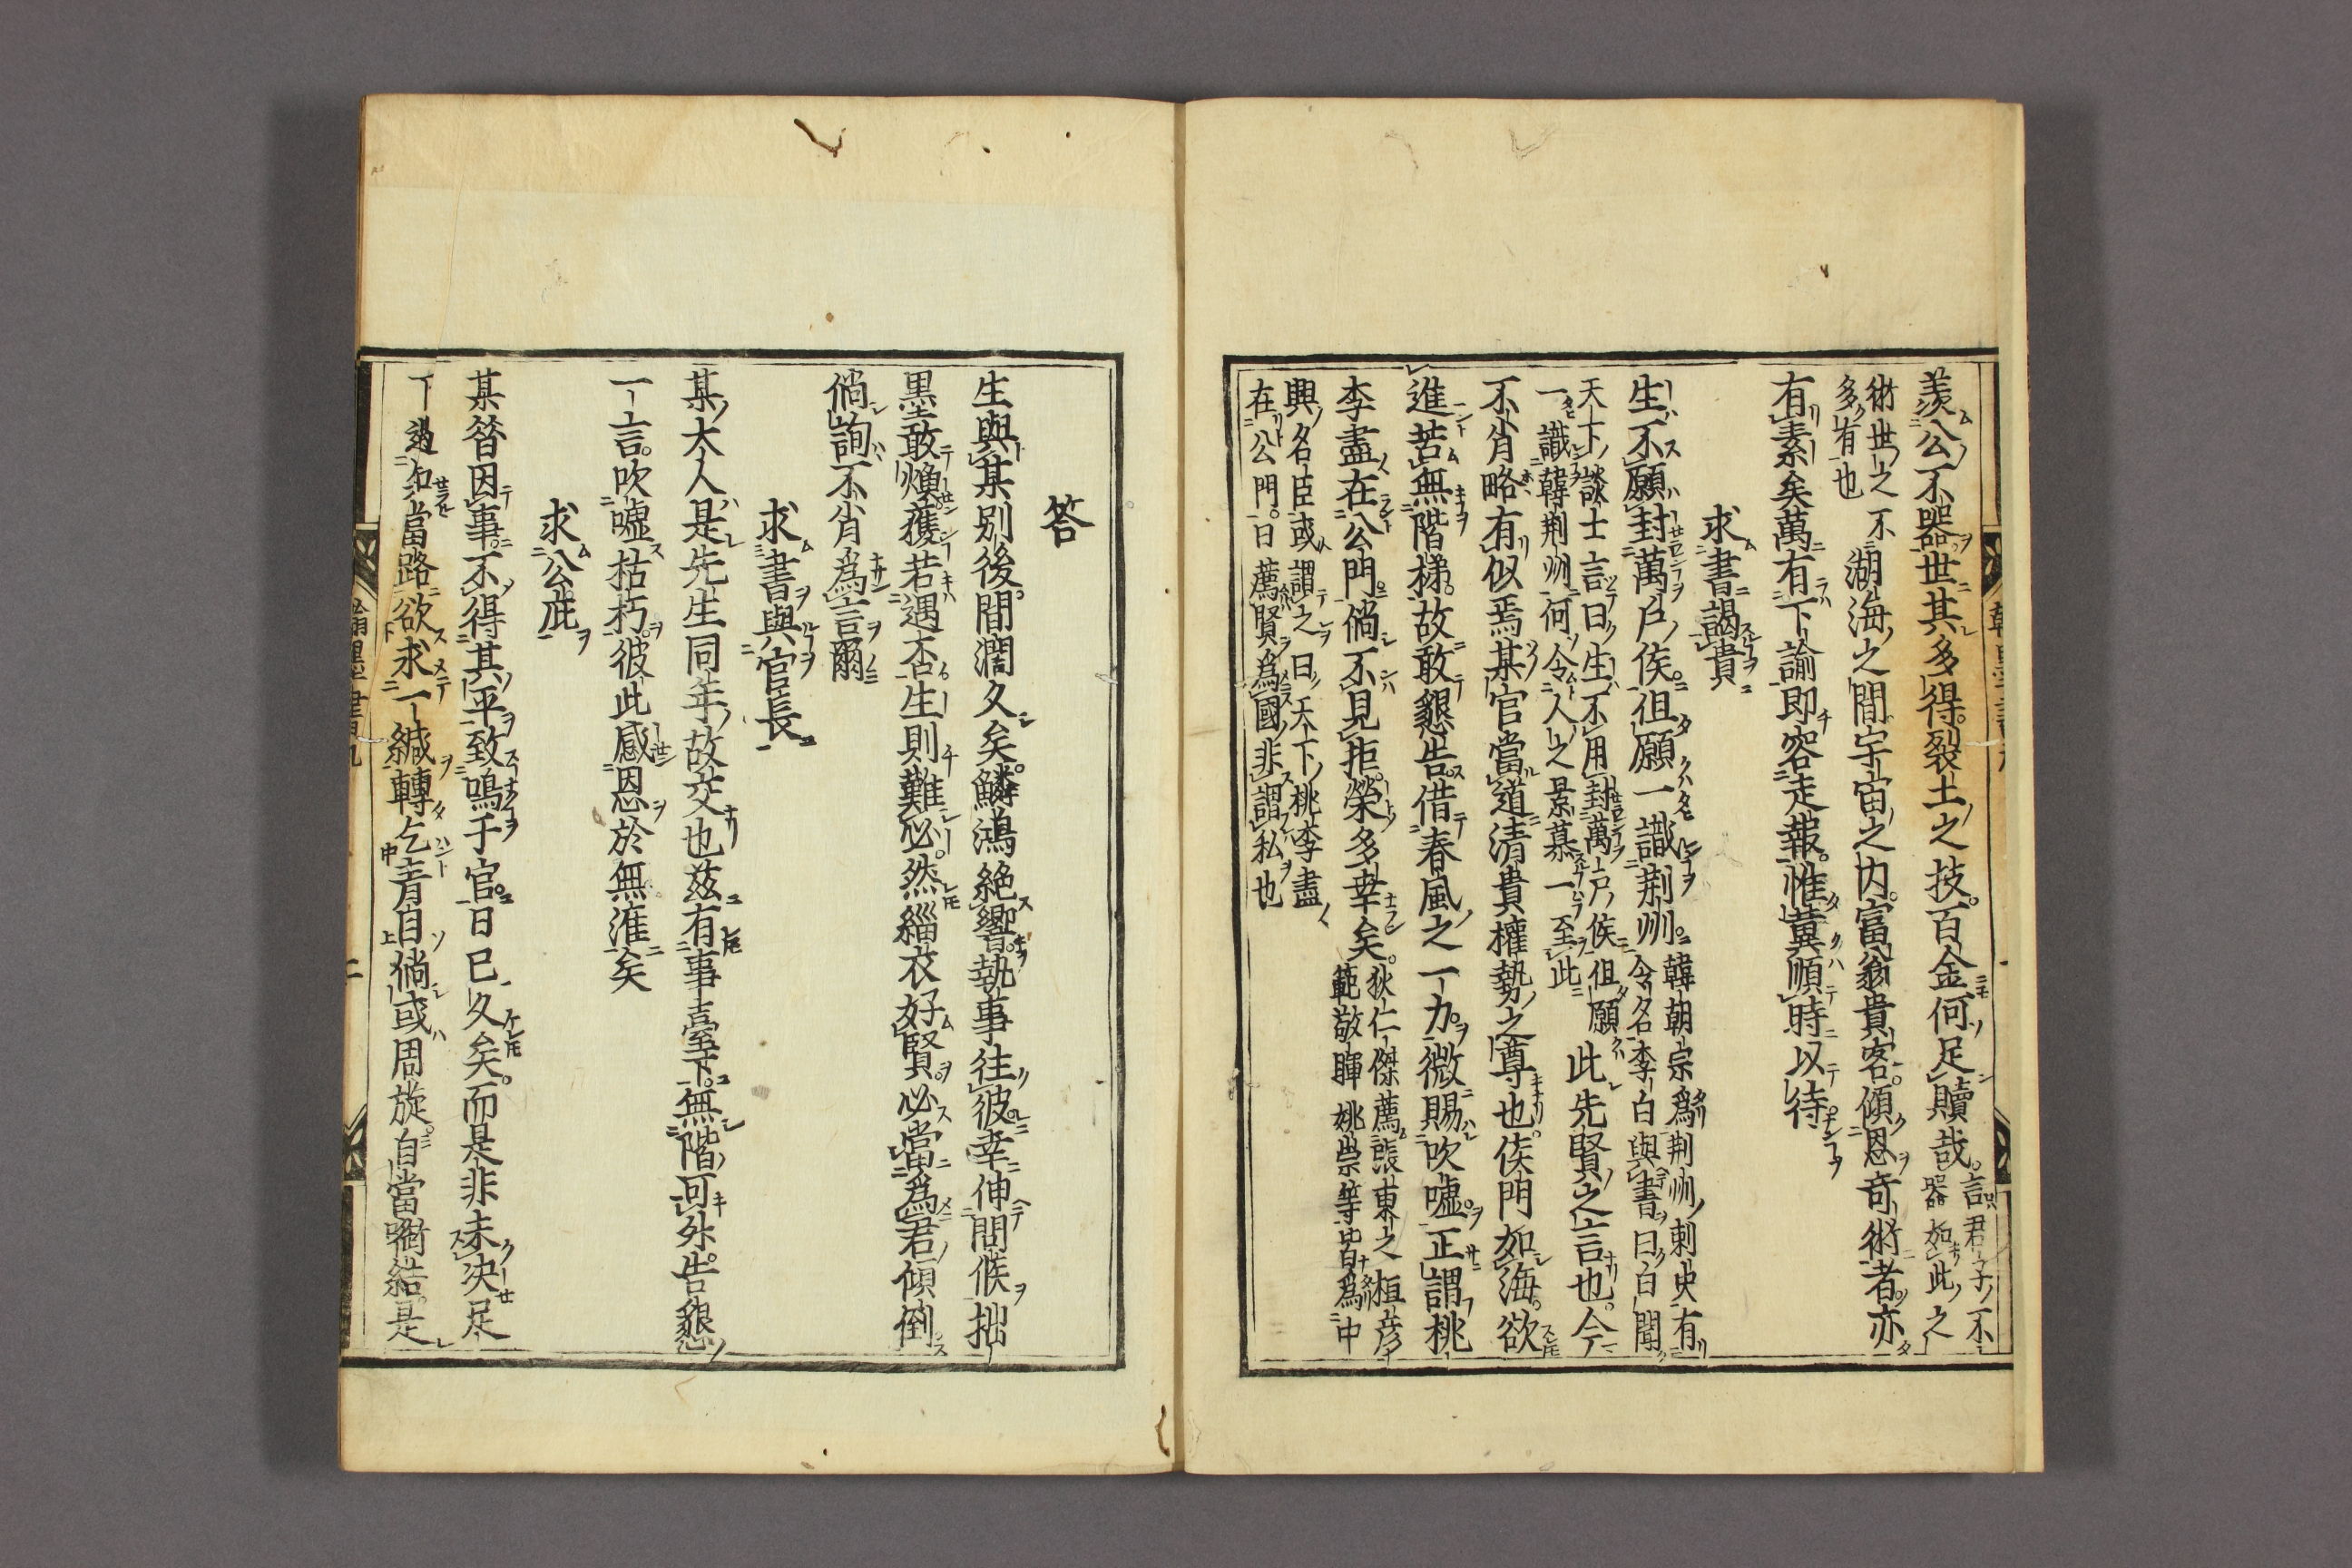 羨公不器世其多得裂土之技百金何足贖哉言君子不
器如此之
術世之不
多有也
湖海之間宇宙之内富翁貴客傾恩奇術者亦
有素矣萬有下諭即容走報惟冀順時以待
求書謁貴
生不願封萬戶侯但願一識荆州韓朝宗爲荆州刺史有
令名李白與書曰白聞
天下談士言曰生不用封萬戶侯但願
一識韓荆州何令人之景慕一至此
此先賢之言也今
不肖略有似焉某官當道清貴權勢之尊也侯門如海欲
進苦無階梯故敢懇告借春風之一力微賜吹噓正謂桃
李盡在公門倘不見拒榮多幸矣狄仁傑薦張東之桓彦
範敬暉姚崇等皆爲中
興名臣或謂之曰天下桃李盡
在公門曰薦賢爲國非謂私也
答
生與某別後間濶久矣鱗鴻絶響執事往彼幸伸問候拙
墨敢煥獲若遇否生則難必然緇衣好賢必當爲君傾倒
倘詢不肖爲言爾
求書與官長
某大人是先生同年故交也茲有事臺下無階可外告懇
一言吹噓枯朽彼此感恩於無涯矣
求公庇
某晉因事不得其平致鳴于官日已久矣而是非未決足
下過知當路欲求一緘轉乞青目倘或周旋自當啣結是